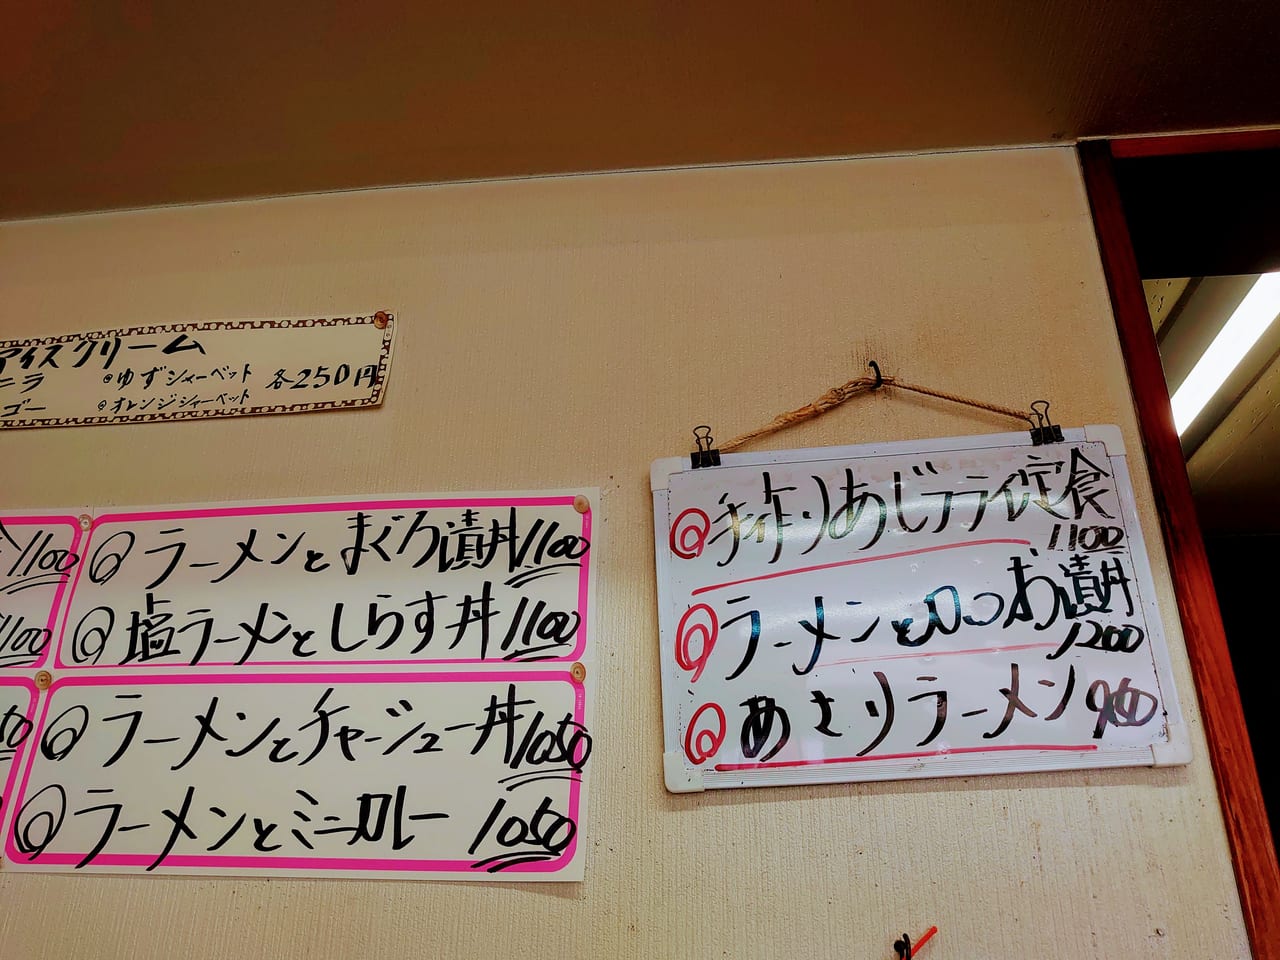 アイスクリーム
ニラ ◎ゆずシャーベット 各250円
ゴー ◎オレンジシャーベット
1100
◎ラーメンとまぐろ漬丼1100
1100
◎塩ラーメンとしらす丼1100
◎ラーメンとチャーシュー丼1050
◎ラーメンとミニカレー 1050
◎手作りあじフライ定食
1100
◎ラーメンとカツお漬丼
1200
◎あさりラーメン 960